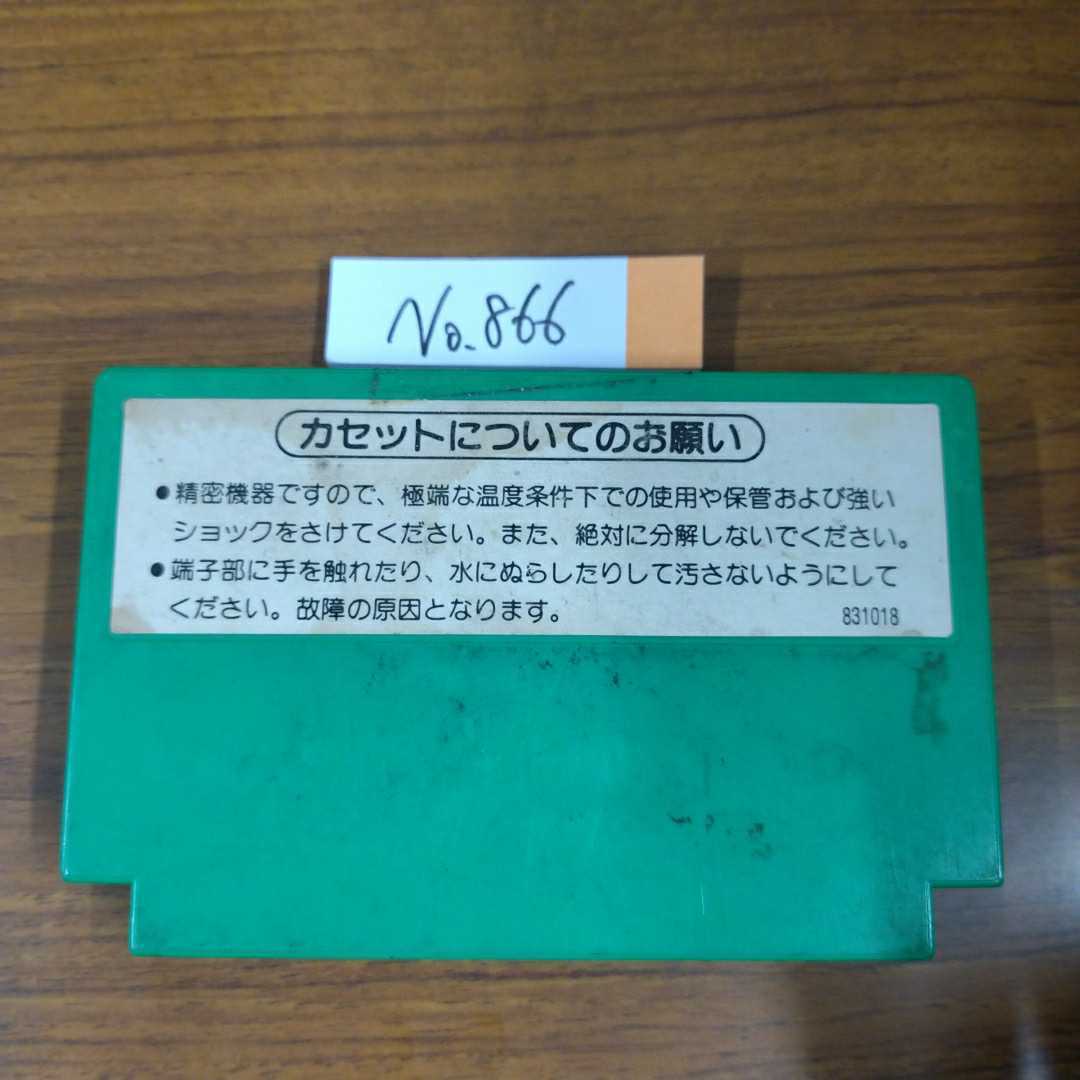 No.866
カセットについてのお願い
●精密機器ですので、極端な温度条件下での使用や保管および強い
ショックをさけてください。また、絶対に分解しないでください。
●端子部に手を触れたり、水にぬらしたりして汚さないようにして
ください。故障の原因となります。
831018